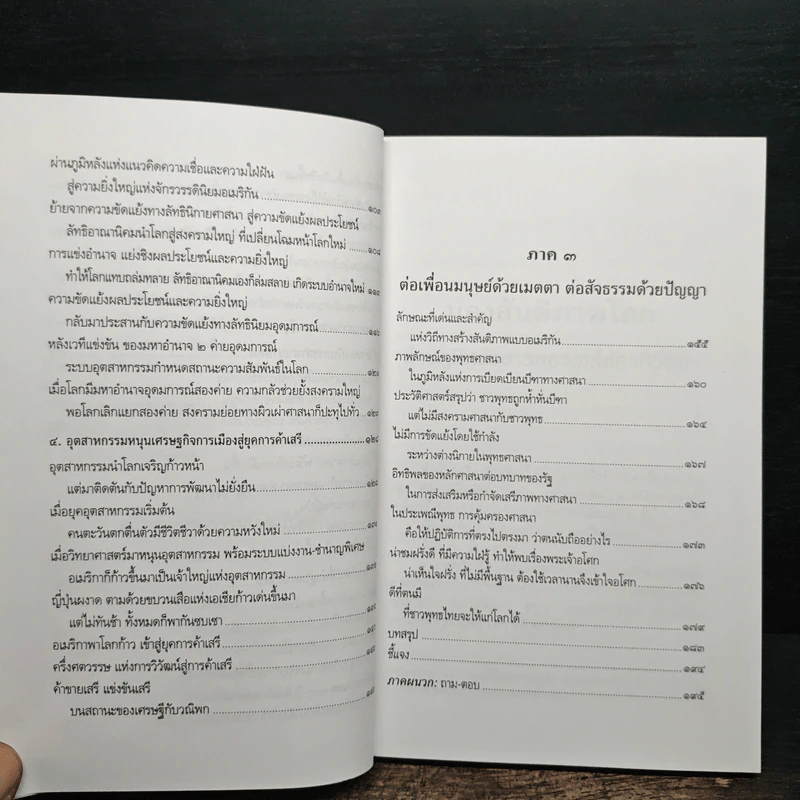 ผ่านภูมิหลังแห่งแนวคิดความเชื่อและความใฝ่ฝัน
สู่ความยิ่งใหญ่แห่งจักรวรรดินิยมอเมริกัน ๑๐๓
ย้ายจากความขัดแย้งทางลัทธินิกายศาสนา สู่ความขัดแย้งผลประโยชน์
ลัทธิอาณานิคมนำโลกสู่สงครามใหญ่ ที่เปลี่ยนโฉมหน้าโลกใหม่ ๑๐๘
การแข่งอำนาจ แย่งชิงผลประโยชน์และความยิ่งใหญ่
ทำให้โลกแทบถล่มทลาย ลัทธิอาณานิคมเองก็ล่มสลาย เกิดระบบอำนาจใหม่ ๑๑๓
ความขัดแย้งผลประโยชน์และความยิ่งใหญ่
กลับมาประสานกับความขัดแย้งทางลัทธินิยมอุดมการณ์ ๑๑๖
หลังเวทีแข่งขัน ของมหาอำนาจ ๒ ค่ายอุดมการณ์
ระบบอุตสาหกรรมกำหนดสถานะความสัมพันธ์ในโลก ๑๒๑
เมื่อโลกมีมหาอำนาจอุดมการณ์สองค่าย ความกลัวช่วยยั้งสงครามใหญ่
พอโลกเลิกแยกสองค่าย สงครามย่อยทางผิวเผ่าศาสนาก็ปะทุไปทั่ว
๔. อุตสาหกรรมหนุนเศรษฐกิจการเมืองสู่ยุคการค้าเสรี ๑๒๘
อุตสาหกรรมนำโลกเจริญก้าวหน้า
แต่มาติดตันกับปัญหาการพัฒนาไม่ยั่งยืน ๑๒๘
เมื่อยุคอุตสาหกรรมเริ่มต้น
คนตะวันตกตื่นตัวมีชีวิตชีวาด้วยความหวังใหม่
เมื่อวิทยาศาสตร์มาหนุนอุตสาหกรรม พร้อมระบบแบ่งงาน-ชำนาญพิเศษ
อเมริกาก็ก้าวขึ้นมาเป็นเจ้าใหญ่แห่งอุตสาหกรรม
ญี่ปุ่นผงาด ตามด้วยขบวนเสือแห่งเอเชียก้าวเด่นขึ้นมา
แต่ไม่ทันช้า ทั้งหมดก็พากันซบเซา
อเมริกาพาโลกก้าว เข้าสู่ยุคการค้าเสรี
ครึ่งศตวรรษ แห่งการวิวัฒน์สู่การค้าเสรี
ค้าขายเสรี แข่งขันเสรี
บนสถานะของเศรษฐีกับวณิพก
ภาค ๓
ต่อเพื่อนมนุษย์ด้วยเมตตา ต่อสัจธรรมด้วยปัญญา
ลักษณะที่เด่นและสำคัญ
แห่งวิถีทางสร้างสันติภาพแบบอเมริกัน ๑๕๕
ภาพลักษณ์ของพุทธศาสนา
ในภูมิหลังแห่งการเบียดเบียนบีฑาทางศาสนา ๑๖๐
ประวัติศาสตร์สรุปว่า ชาวพุทธถูกห้ำหั่นบีฑา
แต่ไม่มีสงครามศาสนากับชาวพุทธ ๑๖๔
ไม่มีการขัดแย้งโดยใช้กำลัง
ระหว่างต่างนิกายในพุทธศาสนา ๑๖๗
อิทธิพลของหลักศาสนาต่อบทบาทของรัฐ
ในการส่งเสริมหรือกำจัดเสรีภาพทางศาสนา ๑๖๘
ในประเพณีพุทธ การคุ้มครองศาสนา
คือให้ปฏิบัติการที่ตรงไปตรงมา ว่าตนนับถืออย่างไร ๑๗๓
น่าชมฝรั่งดี ที่มีความใฝ่รู้ ทำให้พบเรื่องพระเจ้าอโศก
น่าเห็นใจฝรั่ง ที่ไม่มีพื้นฐาน ต้องใช้เวลานานจึงเข้าใจอโศก ๑๗๖
ดีที่ตนมี
ที่ชาวพุทธไทยจะให้แก่โลกได้ ๑๗๙
บทสรุป ๑๘๓
ชี้แจง ๑๙๔
ภาคผนวก: ถาม-ตอบ ๑๙๕